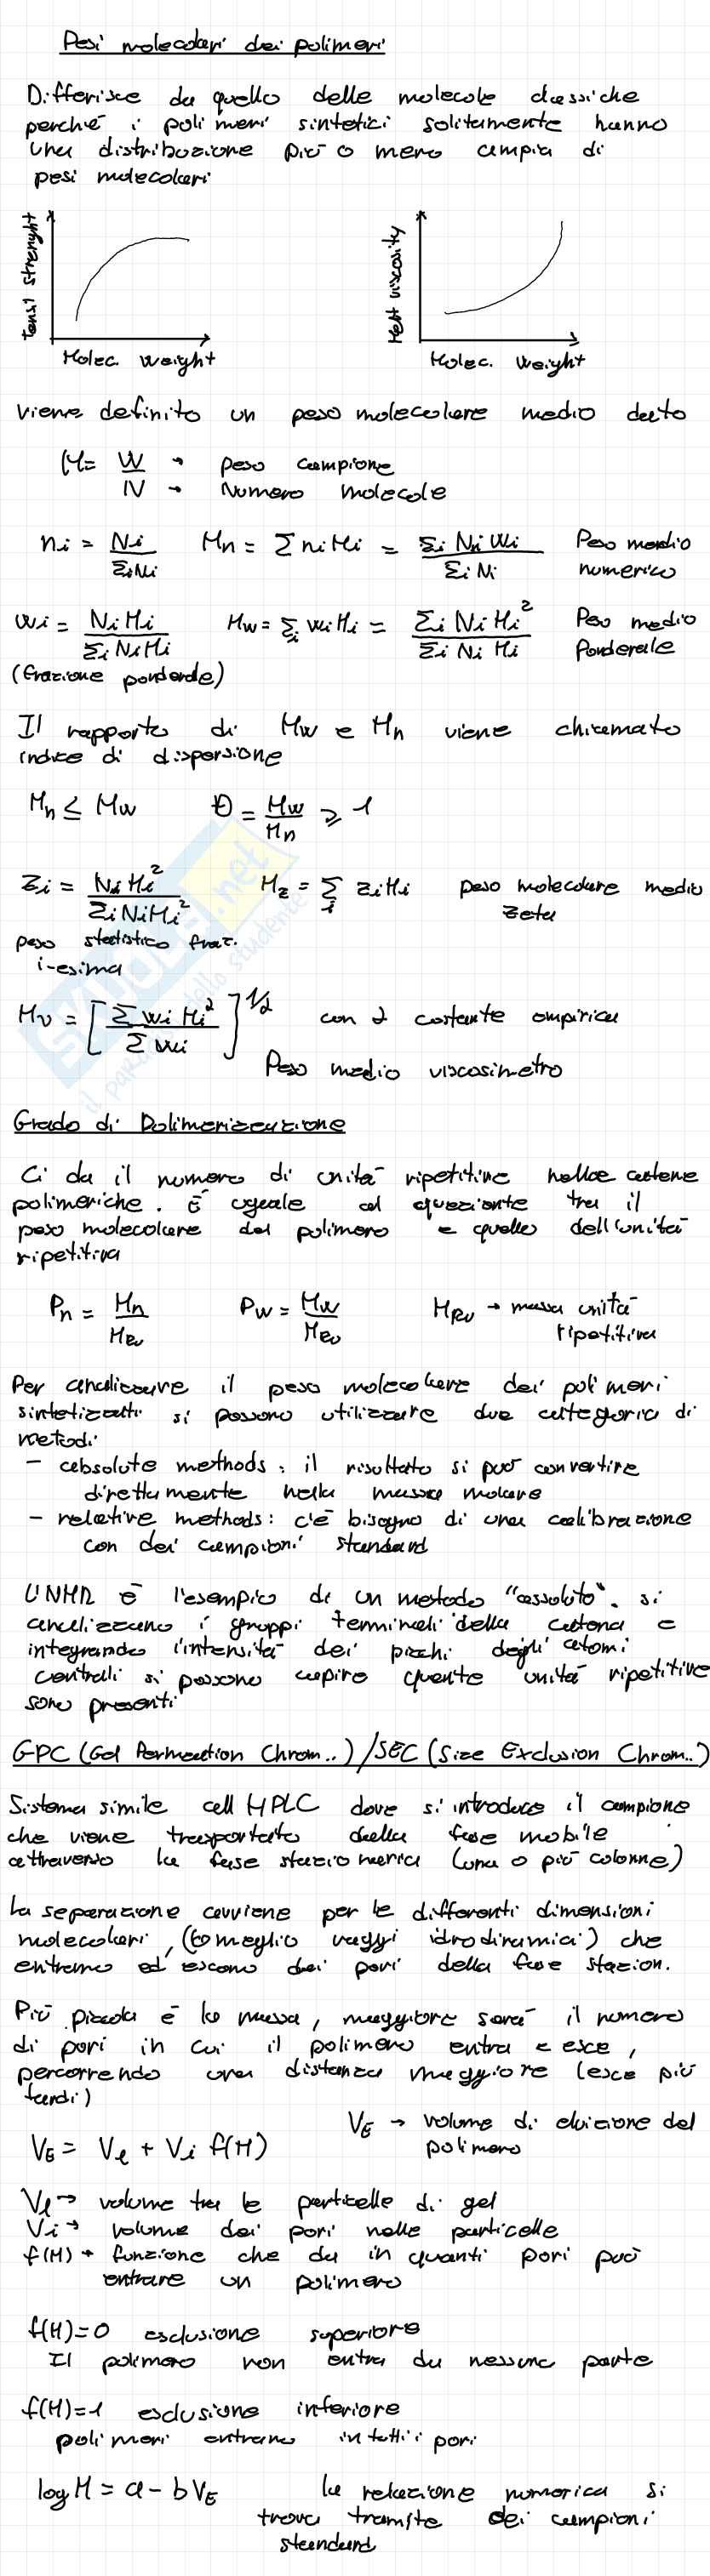 Pesi molecolari dei polimeri
Differisce da quello delle molecole classiche
perché i polimeri sintetici solitamente hanno
una distribuzione più o meno ampia di
pesi molecolari
Tensil strenght
Molec. Weight
Melt viscosity
Molec. Weight
viene definito un peso molecolare medio dato
M = W → peso campione
N → Numero molecole
ni = Ni / Σi Ni Mn = Σ ni Mi = Σi Ni Mi / Σi Ni Peso medio
numerico
wi = Ni Mi / Σi Ni Mi Mw = Σi wi Mi = Σi Ni Mi² / Σi Ni Mi Peso medio
Ponderale
(frazione ponderale)
Il rapporto di Mw e Mn viene chiamato
indice di dispersione
Mn ≤ Mw Đ = Mw / Mn ≥ 1
Zi = Ni Mi² / Σi Ni Mi² Mz = Σi zi Mi peso molecolare medio
zeta
peso statistico fraz.
i-esima
Mv = [Σ wi Mi² / Σ wi]^1/α con α costante empirica
Peso medio viscosimetro
Grado di Polimerizzazione
Ci da il numero di unità ripetitive nelle catene
polimeriche. È uguale al quoziente tra il
peso molecolare del polimero e quello dell'unità
ripetitiva
Pn = Mn / MRU Pw = Mw / MRU MRU → massa unità
ripetitiva
Per analizzare il peso molecolare dei polimeri
sintetizzati si possono utilizzare due categorie di
metodi
- absolute methods: il risultato si può convertire
direttamente nella massa molare
- relative methods: c'è bisogno di una calibrazione
con dei campioni standard
L'NMR è l'esempio di un metodo "assoluto". si
analizzano i gruppi terminali della catena e
integrando l'intensità dei picchi degli atomi
centrali si possono capire quante unità ripetitive
sono presenti
GPC (Gel Permeation Chrom..) / SEC (Size Exclusion Chrom..)
Sistema simile all HPLC dove si introduce il campione
che viene trasportato dalla fase mobile
attraverso la fase stazionaria (una o più colonne)
La separazione avviene per le differenti dimensioni
molecolari, (o meglio raggi idrodinamici) che
entrano ed escono dai pori della fase stazion.
Più piccola è la massa, maggiore sarà il numero
di pori in cui il polimero entra e esce,
percorrendo una distanza maggiore (esce più
tardi)
VE = Vl + Vi f(M) VE → volume di eluizione del
polimero
Vl → volume tra le particelle di gel
Vi → volume dei pori nelle particelle
f(M) → funzione che da in quanti pori può
entrare un polimero
f(M)=0 esclusione superiore
Il polimero non entra da nessuna parte
f(M)=1 esclusione inferiore
polimeri entrano in tutti i pori
log M = a - b VE la relazione numerica si
trova tramite dei campioni
standard